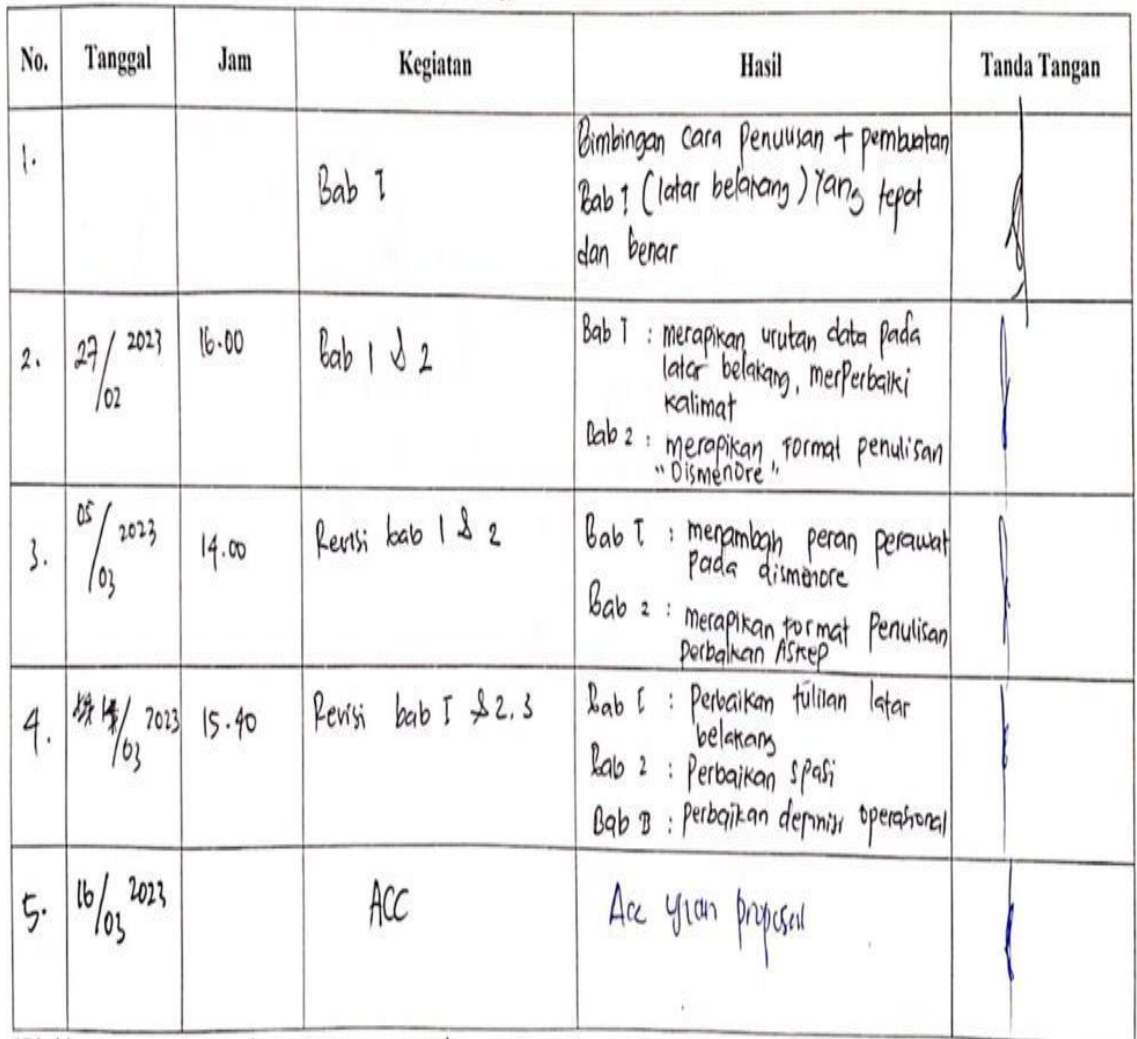 No. Tanggal Jam Kegiatan Hasil Tanda Tangan
1. Bab I Bimbingan cara penulisan + pembuatan
Bab 1 (latar belakang) yang tepat
dan benar
2. 27/02 2023 16.00 Bab 1 & 2 Bab I : merapikan urutan data pada
latar belakang, merPerbaiki
kalimat
Bab 2 : merapikan format penulisan
"Dismenore"
3. 05/03 2023 14.00 Revisi bab 1 & 2 Bab I : menambah peran perawat
pada dismenore
Bab 2 : merapikan format Penulisan
perbaikan Askep
4. /03 2023 15.40 Revisi bab I & 2.3 Bab I : Perbaikan latar
belakang
Bab 2 : Perbaikan spasi
Bab 3 : perbaikan definisi operasional
5. 16/03 2023 ACC Acc ujian proposal